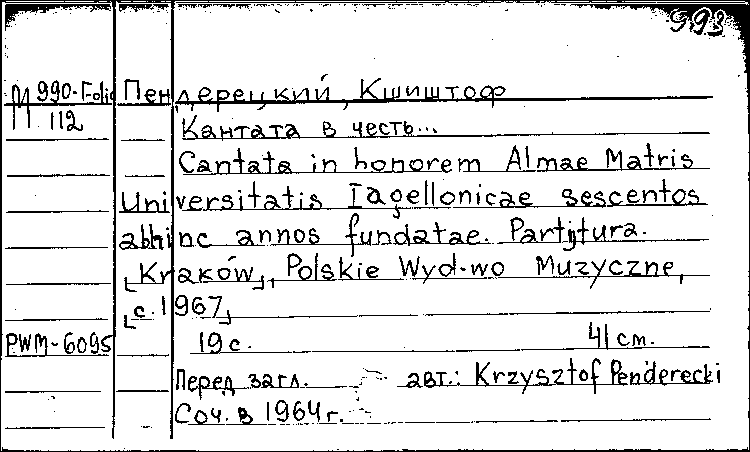 993
М 990-Folio
112
Пендерецкий, Кшиштоф
Кантата в честь...
Cantata in honorem Almae Matris
Universitatis Iagellonicae sescentos
abhinc annos fundatae. Partytura.
[Kraków], Polskie Wyd-wo Muzyczne,
[c.1967]
PWM-6095
19 с. 41 cm.
Перед загл. авт.: Krzysztof Penderecki
Соч. в 1964 г.